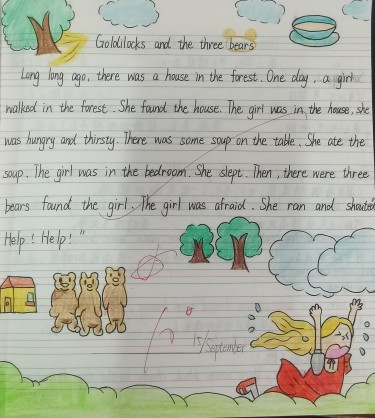 Goldilocks and the three bears
Long long ago, there was a house in the forest. One day, a girl
walked in the forest. She found the house. The girl was in the house, she
was hungry and thirsty. There was some soup on the table. She ate the
soup. The girl was in the bedroom. She slept. Then, there were three
bears found the girl. The girl was afraid. She ran and shouted
Help! Help!"
15/September